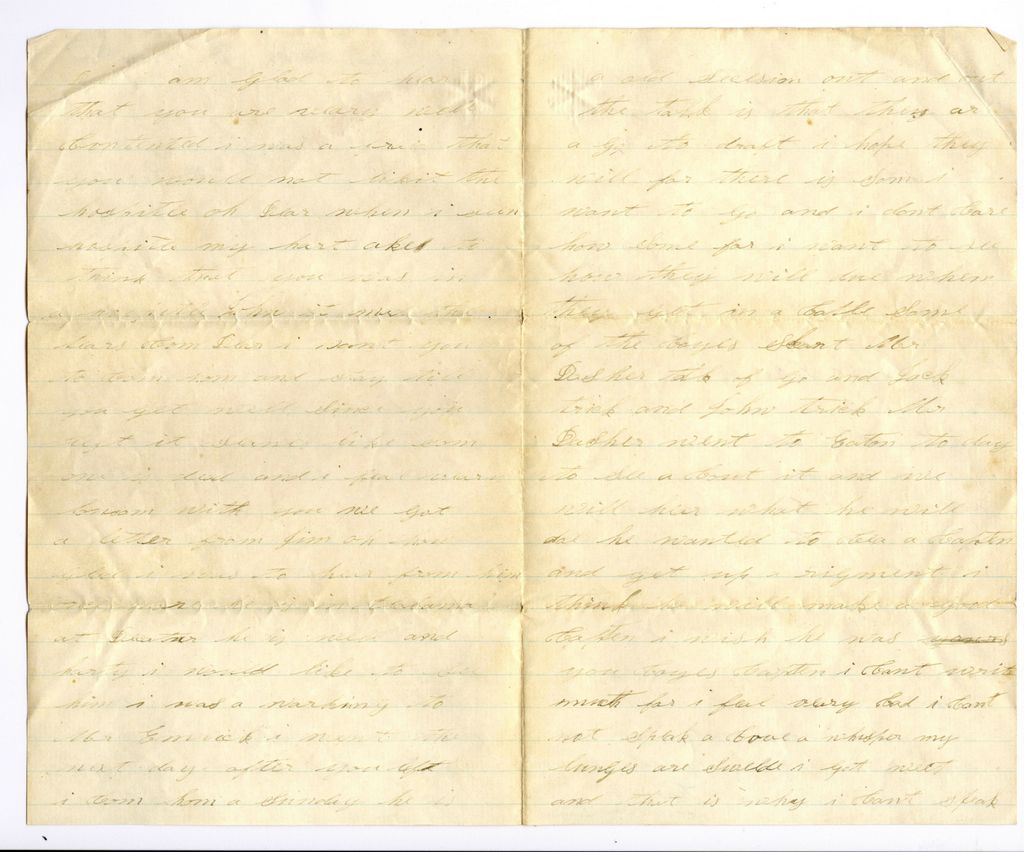 am glad to hear
that you are neary well
Contented i was a fraid that
you would not like it the
hospitle oh Dear when i seen
my hart akes to
think that you was in
tears Com Dear i want you
to Com hom and stay till
you get well Since you
left it seems like som
one is dead and i feal
with you we got
a letter from Jim oh how
glad i was to hear from him
he is in
at he is well and
harty i would like to see
him i was a warking to
Mr Emrick i went the
next day after you left
i Com hom a Sunday he is
a old Secesion out and out
the talk is that they ar
a go to draft i hope they
will for there is Som i
want to go and i dont Care
how Some for i want to see
how they will due when
they get in a Batle Some
of the boyes Mr
Dasher talk of go and Jack
trick and John trick Mr
Dasher went to Eaton to day
to see a bout it and we
will hear what he will
due he wanted to bea a Capten
and get up a rigment i
think he will make a good
Capten i wish he was
you boyes Capten i Cant write
much for i feal very bad i Cant
not Speak a bove a whisper my
lunges are Swelde i got wett
and that is why i Cant speak